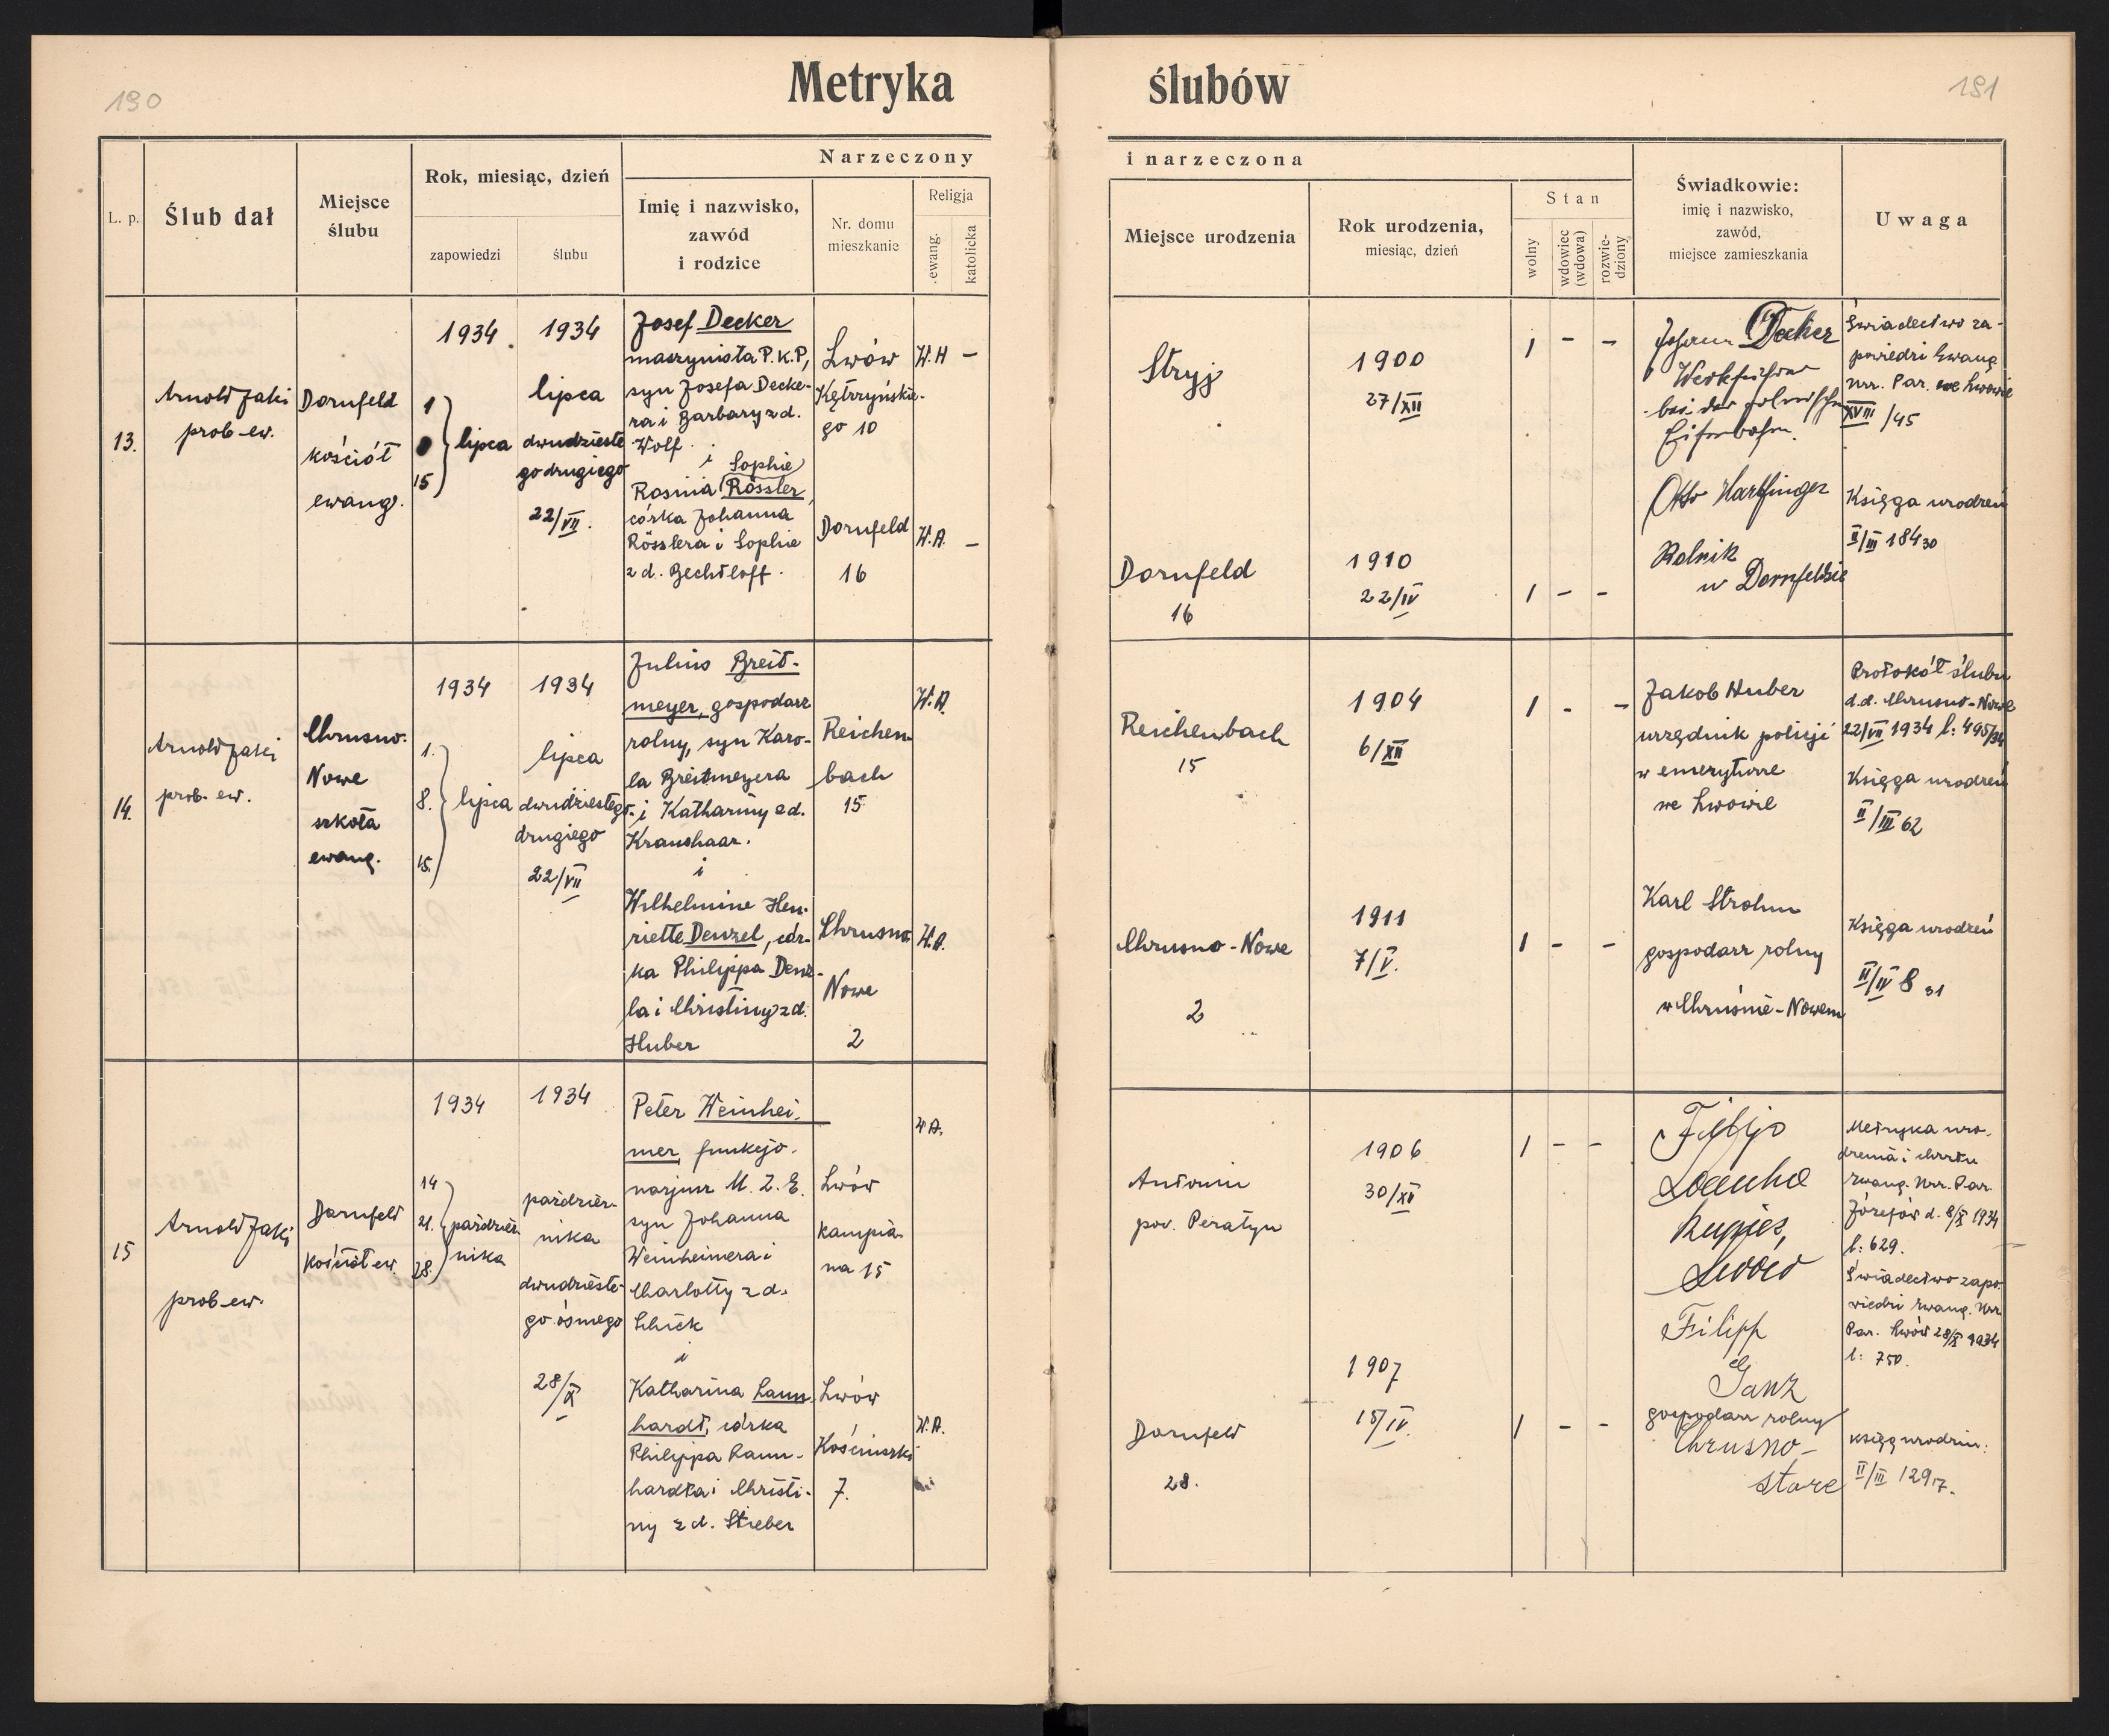 190
Metryka ślubów
191
L. p.
Ślub dał
Miejsce
ślubu
Rok, miesiąc, dzień
zapowiedzi
ślubu
Narzeczony
Imię i nazwisko,
zawód
i rodzice
Nr. domu
mieszkanie
Religja
ewang.
katolicka
i narzeczona
Miejsce urodzenia
Rok urodzenia,
miesiąc, dzień
Stan
wolny
wdowiec
(wdowa)
rozwie-
dziony
Świadkowie:
imię i nazwisko,
zawód,
miejsce zamieszkania
Uwaga
13.
Arnold Jaki
prob-ew.
Dornfeld
kościół
ewang.
1934
1
15
lipca
1934
lipca
dwudzieste
godrugiego
22/VII.
Josef Decker
maszynista P.K.P,
syn Josefa Decke-
ra i Barbary z d.
Wolf.
i
Sophie
Rosina Rössler,
córka Johanna
Rösslera i Sophie
z d. Bechtloff.
Lwów
Kętrzyńskie-
go 10
Dornfeld
16
W.H -
W.A. -
Stryj
Dornfeld
16
1900
27/XII
1910
22/IV
1 - -
1 - -
Johann Decker
Werkführer
bei der polnischen
Eisenbahn.
Otto Harfinger
Rolnik
w Dornfeldzie
Świadectwo za-
powiedzi Ewang.
Urz. Par. we Lwowie
XVIII /45
Księga urodzeń
II/III 184 30
14.
Arnold Jaki
prob. ew.
Chrusno-
Nowe
szkoła
ewang.
1934
1.
8.
15.
lipca
1934
lipca
dwudziestego-
drugiego
22/VII
Julius Breit-
meyer, gospodarz
rolny, syn Karo-
la Breitmeyera
i Kathariny z d.
Kraushaar.
i
Wilhelmine Hen-
riette Denzel, cór-
ka Philippa Denze-
la i Christiny z d.
Huber
Reichen-
bach
15
Chrusno
Nowe
2
W.A.
W.A.
Reichenbach
15
Chrusno-Nowe
2
1904
6/XII
1911
7/V.
1 - -
1 - -
Jakob Huber
urzędnik policji
w emeryturze
we Lwowie
Karl Strohm
gospodarz rolny
w Chruśnie-Nowem
Protokół ślubu
d.d. Chrusno-Nowe
22/VII 1934 l: 495/34
Księga urodzeń
II/III 62
Księga urodzeń
II/IV 8 31
15
Arnold Jaki
prob-ew.
Dornfeld
kościół ew.
1934
14
21.
28.
paździer-
nika
1934
paździer-
nika
dwudzieste-
go ósmego
28/X
Peter Weinhei-
mer, funkcjo-
narjusz M. Z. E.
syn Johanna
Weinheimera i
Charlotty z d.
Schick
i
Katharina Laun-
hardt, córka
Philippa Laun-
hardta i Christi-
ny z d. Stieber
Lwów
kampia-
na 15
Lwów
Kościuszki
7.
W.A.
W.A.
Antonin
pow. Peratyn
Dornfeld
28.
1906
30/XI
1907
15/IV.
1 - -
1 - -
Filip
Lwów
Filipp
Ganz
gospodarz rolny
Chrusno-
stare
Metryka uro-
dzenia i chrztu
ewang. Urz. Par.
Józefów d. 8/X 1934
l: 629.
Świadectwo zapo-
wiedzi ewang. Urz.
Par. Lwów 28/X 1934
l: 750.
księg urodzin:
II/III 129 17.